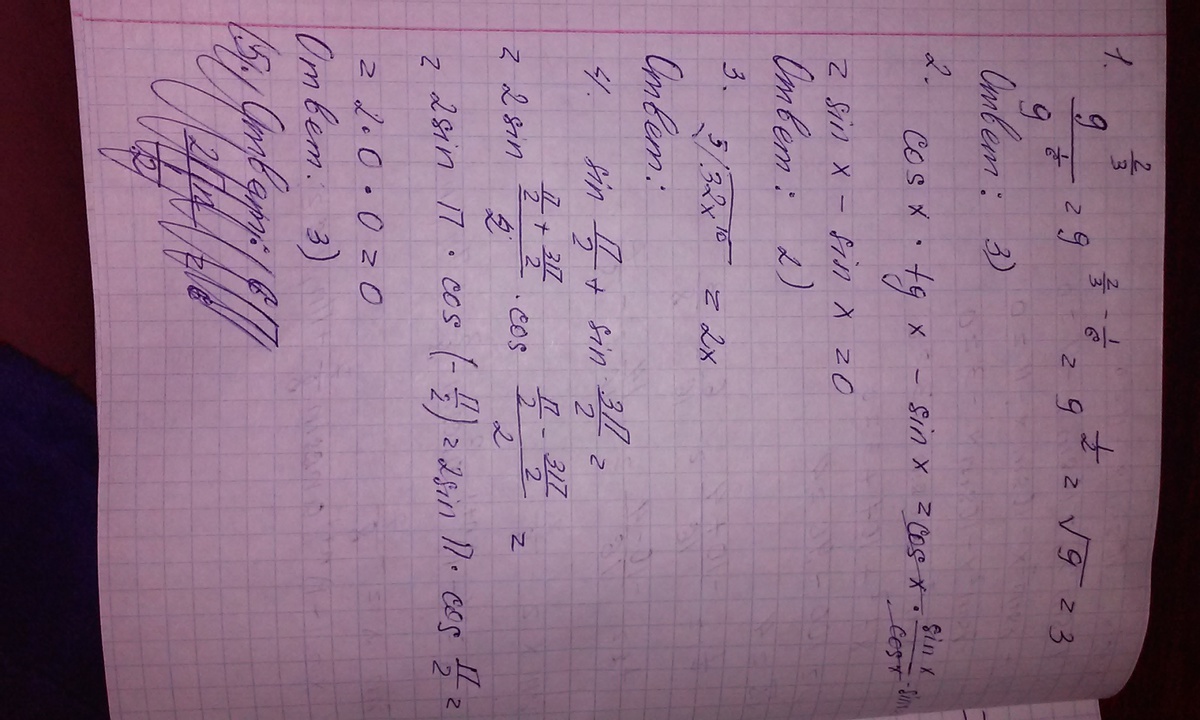 1. 9^(2/3) / 9^(1/6) = 9^(2/3 - 1/6) = 9^(1/2) = √9 = 3
Ответ: 3)
2. cos x · tg x - sin x = cos x · sin x / cos x - sin
= sin x - sin x = 0
Ответ: 2)
3. ⁵√(32x¹⁰) = 2x
Ответ:
4. sin π/2 + sin 3π/2 =
= 2 sin (π/2 + 3π/2)/2 · cos (π/2 - 3π/2)/2 =
= 2 sin π · cos (-π/2) = 2 sin π · cos π/2 =
= 2 · 0 · 0 = 0
Ответ: 3)